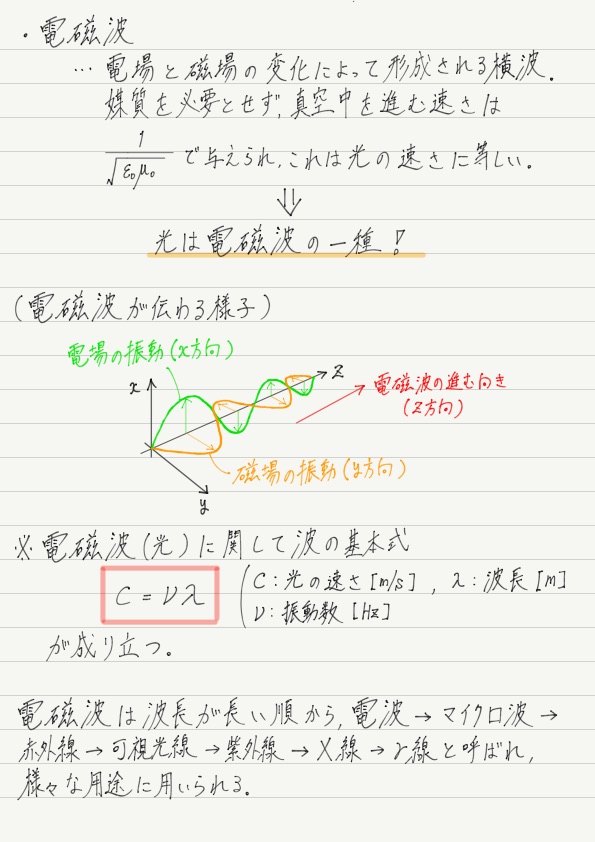 ・電磁波
… 電場と磁場の変化によって形成される横波.
媒質を必要とせず, 真空中を進む速さは
1/√ε₀μ₀ で与えられ, これは光の速さに等しい。
⇓
光は電磁波の一種!
(電磁波が伝わる様子)
電場の振動(x方向)
x
z
電磁波の進む向き
(z方向)
磁場の振動(y方向)
y
※ 電磁波(光)に関して波の基本式
C = νλ
(C:光の速さ[m/s], λ:波長[m]
ν:振動数[Hz]
が成り立つ。
電磁波は波長が長い順から, 電波→マイクロ波→
赤外線→可視光線→紫外線→X線→γ線と呼ばれ,
様々な用途に用いられる。